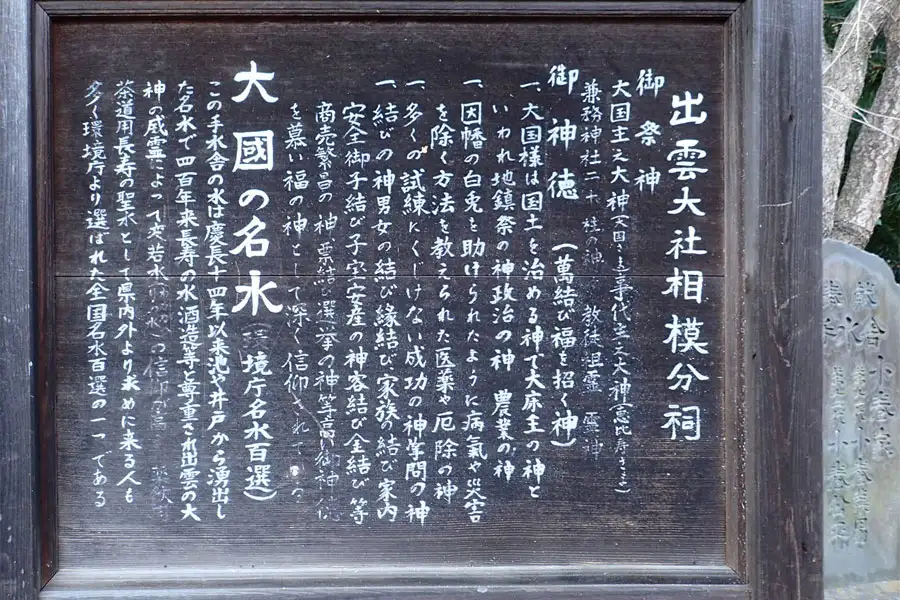 出雲大社相模分祠
御祭神
大国主之大神(大国さま)事代主之大神(恵比寿さま)
兼務神社二十 柱の神 教徒祖霊 霊神
御神徳 (萬結び福を招く神)
一、大国様は国土を治める神で大床主の神と
いわれ地鎮祭の神政治の神 農業の神
一、因幡の白兎を助けられたように病氣や災害
を除く方法を教えられた医薬や厄除の神
一、多くの試練にくじけない成功の神学問の神
一、結びの神男女の結び縁結び家族の結び家内
安全御子結び子宝安産の神客結び金結び等
商売繁昌の神票結び選挙の神等高い御神徳
を慕い福の神として深く信仰されて
大國の名水(環境庁名水百選)
この手水舎の水は慶長十四年以来池や井戸から湧出し
た名水で四百年来長寿の水酒造等で尊重され出雲の大
神の威霊によって変若水 の信仰が高
茶道用長寿の聖水として県内外より求めに来る人も
多く環境庁より選ばれた全国名水百選の一つである